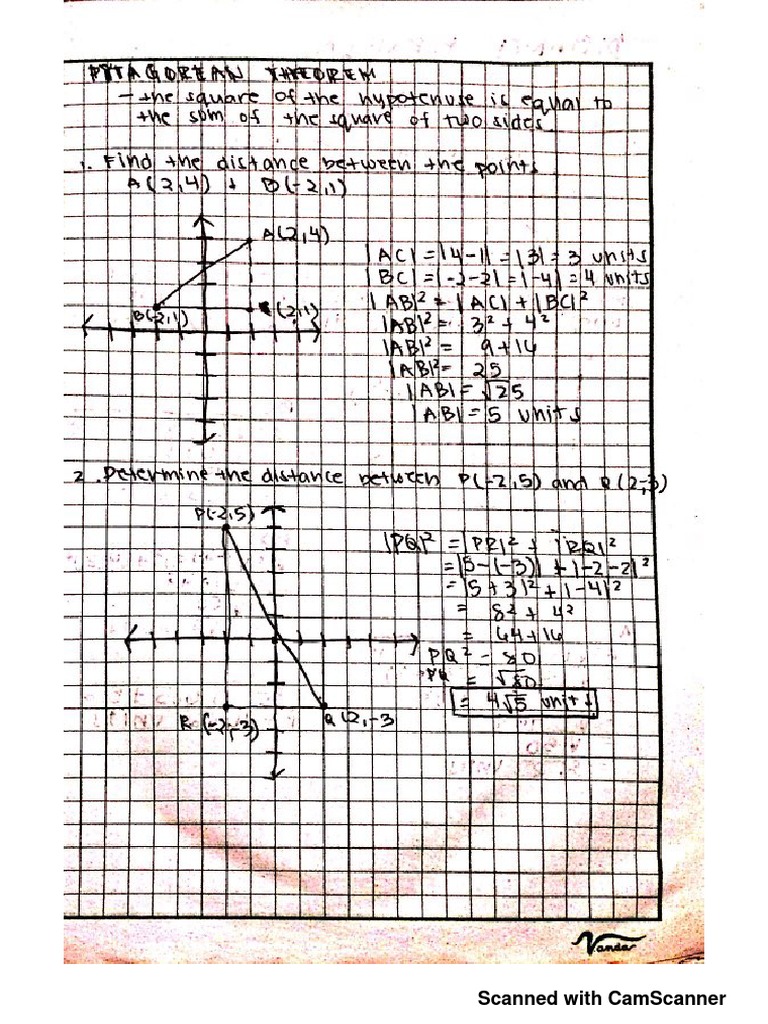 PYTAGOREAN THEOREM
- the square of the hypotenuse is equal to
the sum of the square of two sides
1. Find the distance between the points
A(2,4) + B(-2,1)
A(2,4)
B(-2,1)
(2,1)
|AC| = |4-1| = |3| = 3 units
|BC| = |-2-2| = |-4| = 4 units
|AB|² = |AC| + |BC|²
|AB|² = 3² + 4²
|AB|² = 9+16
|AB|² = 25
|AB| = √25
|AB| = 5 units
2. Determine the distance between P(-2,5) and Q(2,-3)
P(-2,5)
R(-2,-3)
Q(2,-3
|PQ|² = |PR|² + |RQ|²
= |5-(-3)| + |-2-2|²
= |5+3|² + |-4|²
= 8² + 4²
= 64+16
PQ² = 80
PQ = √80
= 4√5 units
Vandar
Scanned with CamScanner